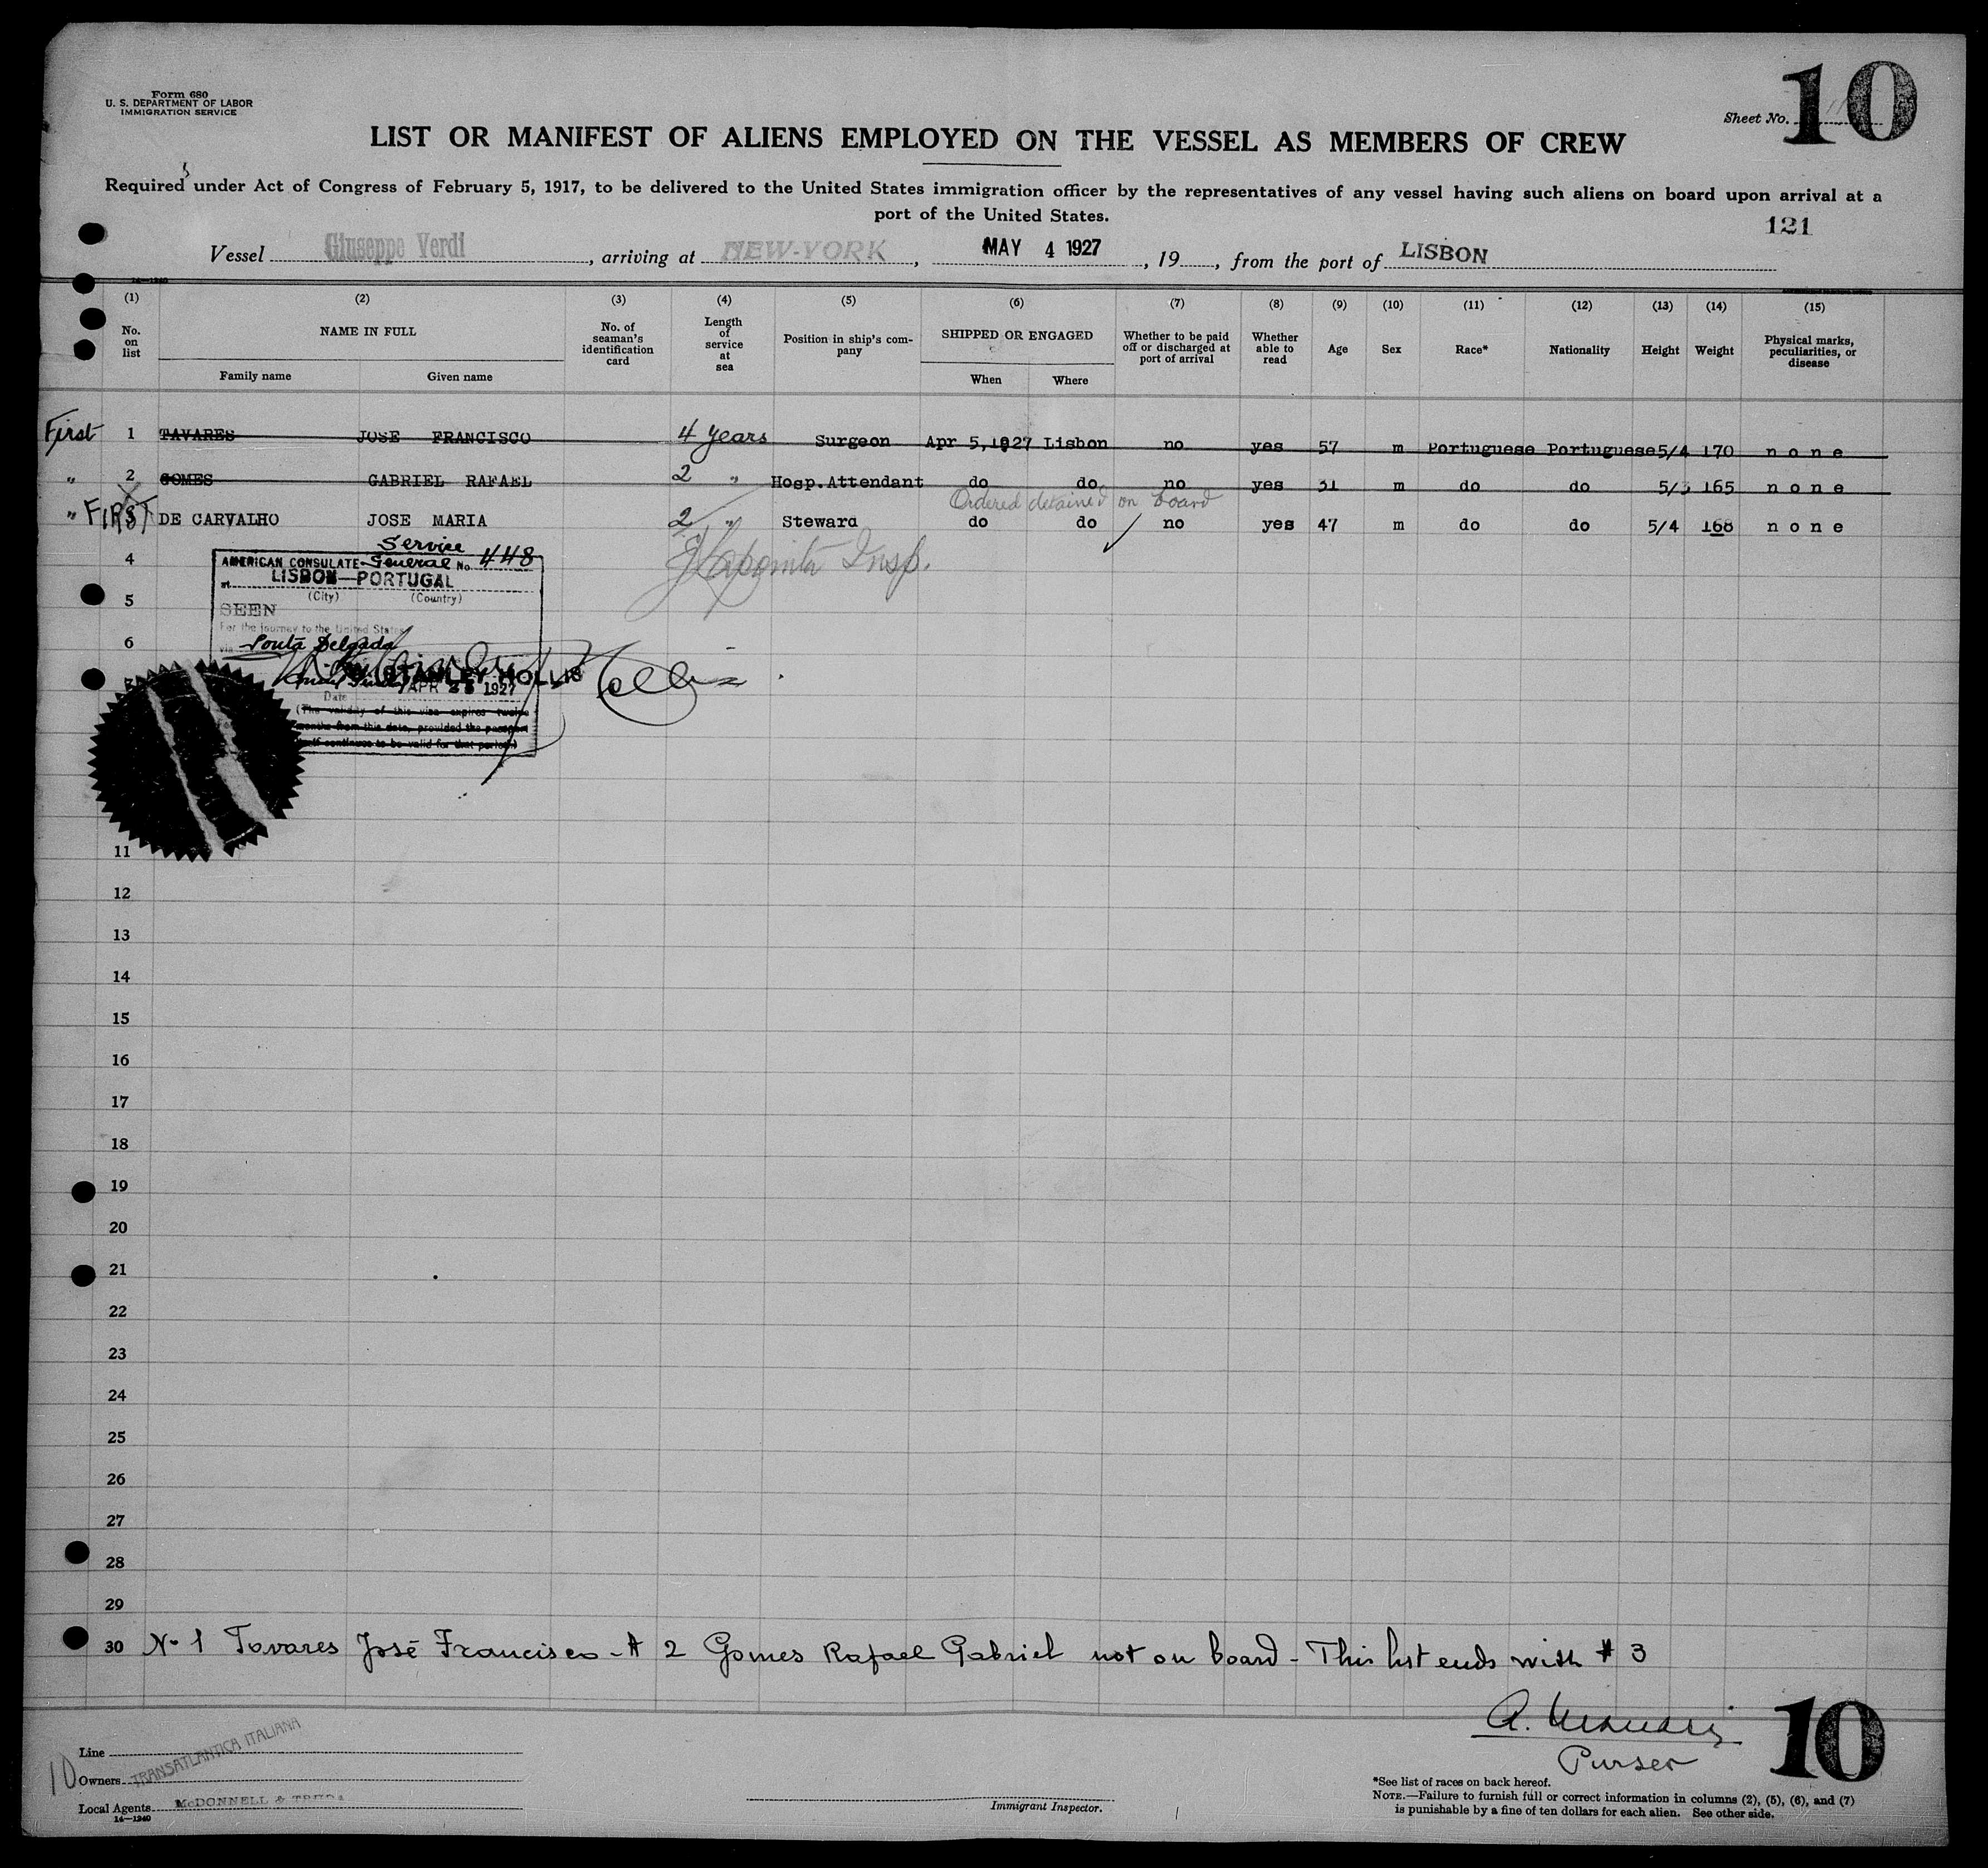 Form 680
U. S. DEPARTMENT OF LABOR
IMMIGRATION SERVICE
Sheet No. 10
LIST OR MANIFEST OF ALIENS EMPLOYED ON THE VESSEL AS MEMBERS OF CREW
Required under Act of Congress of February 5, 1917, to be delivered to the United States immigration officer by the representatives of any vessel having such aliens on board upon arrival at a
port of the United States.
121
Vessel Giuseppe Verdi, arriving at NEW-YORK, MAY 4 1927, 19, from the port of LISBON
14—1240
(1) (2) (3) (4) (5) (6) (7) (8) (9) (10) (11) (12) (13) (14) (15)
No. on list
NAME IN FULL
Family name
Given name
No. of seaman's identification card
Length of service at sea
Position in ship's company
SHIPPED OR ENGAGED
When
Where
Whether to be paid off or discharged at port of arrival
Whether able to read
Age
Sex
Race*
Nationality
Height
Weight
Physical marks, peculiarities, or disease
First 1 TAVARES JOSE FRANCISCO 4 years Surgeon Apr 5,1927 Lisbon no yes 57 m Portuguese Portuguese 5/4 170 none
" 2 GOMES GABRIEL RAFAEL 2 " Hosp.Attendant do do no yes 31 m do do 5/3 165 none
Ordered detained on board
" FIRST 3 DE CARVALHO JOSE MARIA 2 " Steward do do no yes 47 m do do 5/4 168 none
Insp.
Service
AMERICAN CONSULATE General No. 448
at LISBON—PORTUGAL
(City) (Country)
SEEN
For the journey to the United States
via Ponta Delgada
STANLEY HOLLIS
APR 1927
Date
(The validity of this visa expires twelve
months from this date, provided the passport
itself continues to be valid for that period)
4
5
6
11
12
13
14
15
16
17
18
19
20
21
22
23
24
25
26
27
28
29
30 No 1 Tavares José Francisco - # 2 Gomes Rafael Gabriel not on board - This list ends with # 3
Purser
10
10
Line
Owners TRANSATLANTICA ITALIANA
Local Agents McDONNELL & TRUDA
14—1240
Immigrant Inspector.
*See list of races on back hereof.
NOTE.—Failure to furnish full or correct information in columns (2), (5), (6), and (7)
is punishable by a fine of ten dollars for each alien. See other side.